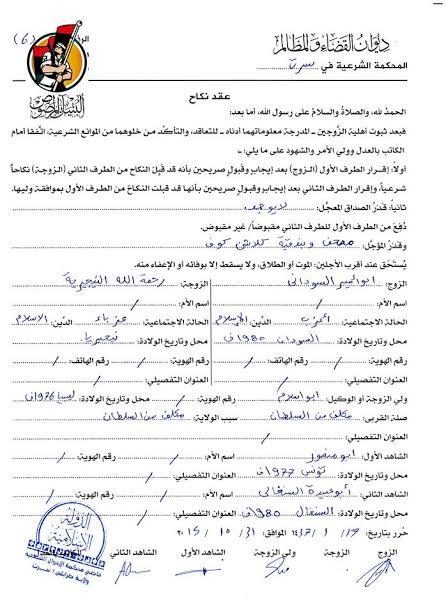 ديوان القضاء والمظالم
المحكمة الشرعية في سرت
(٦)
البنيان المرصوص
عقد نكاح
الحمدُ لله، والصلاةُ والسلامُ على رسول الله، أما بعد:
فبعد ثبوت أهلية الزَّوجين ـ المدرجة معلوماتهما أدناه ـ للتعاقد، والتأكد من خلوهما من الموانع الشرعية، اتَّفقا أمام
الكاتب بالعدل وولي الأمر والشهود على ما يلي:
أولاً: إقـرار الطرف الأول (الـزوج) بعد إيجاب وقبولٍ صريحين بأنه قد قبِلَ النكاح من الطرف الثاني (الـزوجة) نكاحاً
شرعياً، وإقرار الطرف الثاني بعد إيجاب وقبول صريحين بأنها قد قبلت النكاح من الطرف الأول بموافقة وليها.
ثانياً: قدرُ الصداق المعجل: لا يوجد
دُفِعَ من الطرف الأول للطرف الثاني مقبوضاً/ غير مقبوض.
وقدرُ المؤجَّل: مصحف وبندقية كلاشن كوف
يُستَحق عند أقرب الأجلين: الموت أو الطلاق، ولا يسقط إلا بوفائه أو الإعفاء منه.
الزوج: ابو السوداني الزوجة: رحمة الله النيجيرية
اسم الأم: / اسم الأم: /
الحالة الاجتماعية: أعزب الدّين: الإسلام الحالة الاجتماعية: عزباء الدّين: الاسلام
محل وتاريخ الولادة: السودان 1980ف محل وتاريخ الولادة: نيجيريا
رقم الهوية: / رقم الهاتف: / رقم الهوية: / رقم الهاتف: /
العنوان التفصيلي: / العنوان التفصيلي: /
ولي الزوجة أو الوكيل: ابو اسلام رقم الهوية: / محل وتاريخ الولادة: ليبيا 1976ف
صلة القربى: مكلف من السلطان سبب الولاية: مكلف من السلطان
العنوان التفصيلي: /
الشاهد الأول: ابو منصور اسم الأم: / رقم الهوية: /
محل وتاريخ الولادة: تونس 1977ف العنوان التفصيلي: /
الشاهد الثاني: ابو عبيدة السنغالي اسم الأم: / رقم الهوية: /
محل وتاريخ الولادة: السنغال 1980ف العنوان التفصيلي: /
حُرر بتاريخ: ١٤٣٧/١/ الموافق: ٣١/ ١٠ /٢٠١٥
الزوج الزوجة ولي الزوجة الشاهد الأول الشاهد الثاني
الدولة
الاسلامية
ولاية طرابلس - سرت